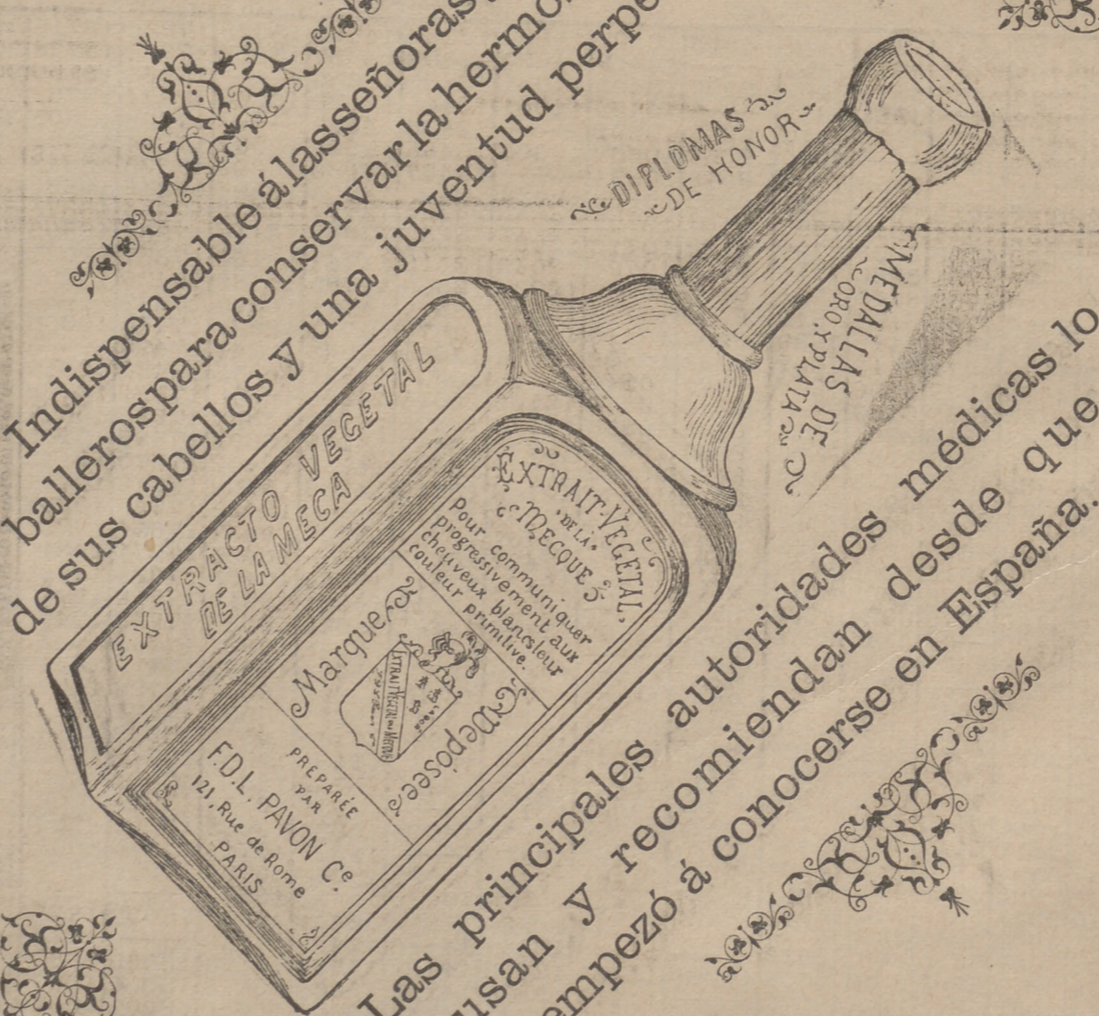 Indispensable á las señoras
balleros para conservar la hermo
de sus cabellos y una juventud perpe
DIPLOMAS
DE HONOR
MEDALLAS DE
ORO Y PLATA
EXTRACTO VEGETAL
DE LA MECA
EXTRAIT-VEGETAL,
DE LA
MECQUE
Pour communiquer
progressivement aux
cheliveux blancsleur
couleur primitive.
Marque
Déposée
PREPARÉE
PAR
F.D.L. PAVON Ce.
121, Rue de Rome
PARIS
Las principales autoridades médicas lo
usan y recomiendan desde que
empezó á conocerse en España.